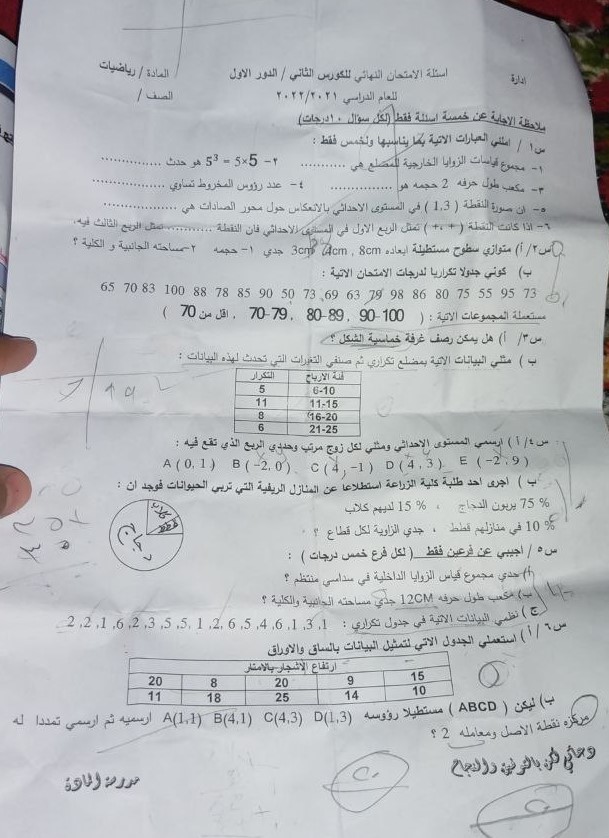 ادارة اسئلة الامتحان النهائي للكورس الثاني / الدور الاول المادة / رياضيات
للعام الدراسي ٢٠٢٢/٢٠٢١ الصف /
ملاحظة الاجابة عن خمسة اسئلة فقط (لكل سؤال ١٠درجات)
س١ / املئي العبارات الاتية بما يناسبها ولخمس فقط :
١- مجموع قياسات الزوايا الخارجية للمضلع هي ............ ٢- 5³ = 5×5 هو حدث ..............
٣- مكعب طول حرفه 2 حجمه هو .............. ٤- عدد رؤوس المخروط تساوي ..................
٥- ان صورة النقطة ( 1,3 ) في المستوى الاحداثي بالانعكاس حول محور الصادات هي ..................
٦- اذا كانت النقطة ( + ,+ ) تمثل الربع الاول في المستوى الاحداثي فان النقطة .............. تمثل الربع الثالث فيه.
س٢/ أ) متوازي سطوح مستطيلة ابعاده 3cm , 4cm , 8cm جدي ١- حجمه ٢-مساحته الجانبية و الكلية ؟
ب) كوني جدولا تكراريا لدرجات الامتحان الاتية :
65 70 83 100 88 78 85 90 50 73 69 63 79 98 86 80 75 55 95 73
مستعملة المجموعات الاتية : ( 90-100 , 80-89 , 70-79 , اقل من 70 )
س٣/ أ) هل يمكن رصف غرفة خماسية الشكل ؟
ب ) مثلي البيانات الاتية بمضلع تكراري ثم صنفي التغيرات التي تحدث لهذه البيانات :
فئة الارباح التكرار
6-10 5
11-15 11
16-20 8
21-25 6
س٤/ أ ) ارسمي المستوى الاحداثي ومثلي لكل زوج مرتب وحددي الربع الذي تقع فيه :
A ( 0, 1 ) B ( −2, 0 ) C ( 4 , −1 ) D ( 4 , 3 ) E ( −2 , 9 )
ب ) اجرى احد طلبة كلية الزراعة استطلاعا عن المنازل الريفية التي تربي الحيوانات فوجد ان :
% 75 يربون الدجاج ، % 15 لديهم كلاب
% 10 في منازلهم قطط ، جدي الزاوية لكل قطاع ؟
دجاج
س٥ / اجيبي عن فرعين فقط ( لكل فرع خمس درجات ) :
أ) جدي مجموع قياس الزوايا الداخلية في سداسي منتظم ؟
ب) مكعب طول حرفه 12CM جدي مساحته الجانبية والكلية ؟
ج ) نظمي البيانات الاتية في جدول تكراري : 2,2,1,6,2,3,5,5,1,2,6,5,4,6,1,3,1
س٦ / أ ) استعملي الجدول الاتي لتمثيل البيانات بالساق والاوراق
ارتفاع الاشجار بالامتار
20 8 20 9 15
11 18 25 14 10
ب) ليكن ( ABCD ) مستطيلا رؤوسه A(1,1) B(4,1) C(4,3) D(1,3) ارسميه ثم ارسمي تمددا له
مركزه نقطة الاصل ومعامله 2 ؟
دعائي لكن بالتوفيق والنجاح
مدرسة المادة